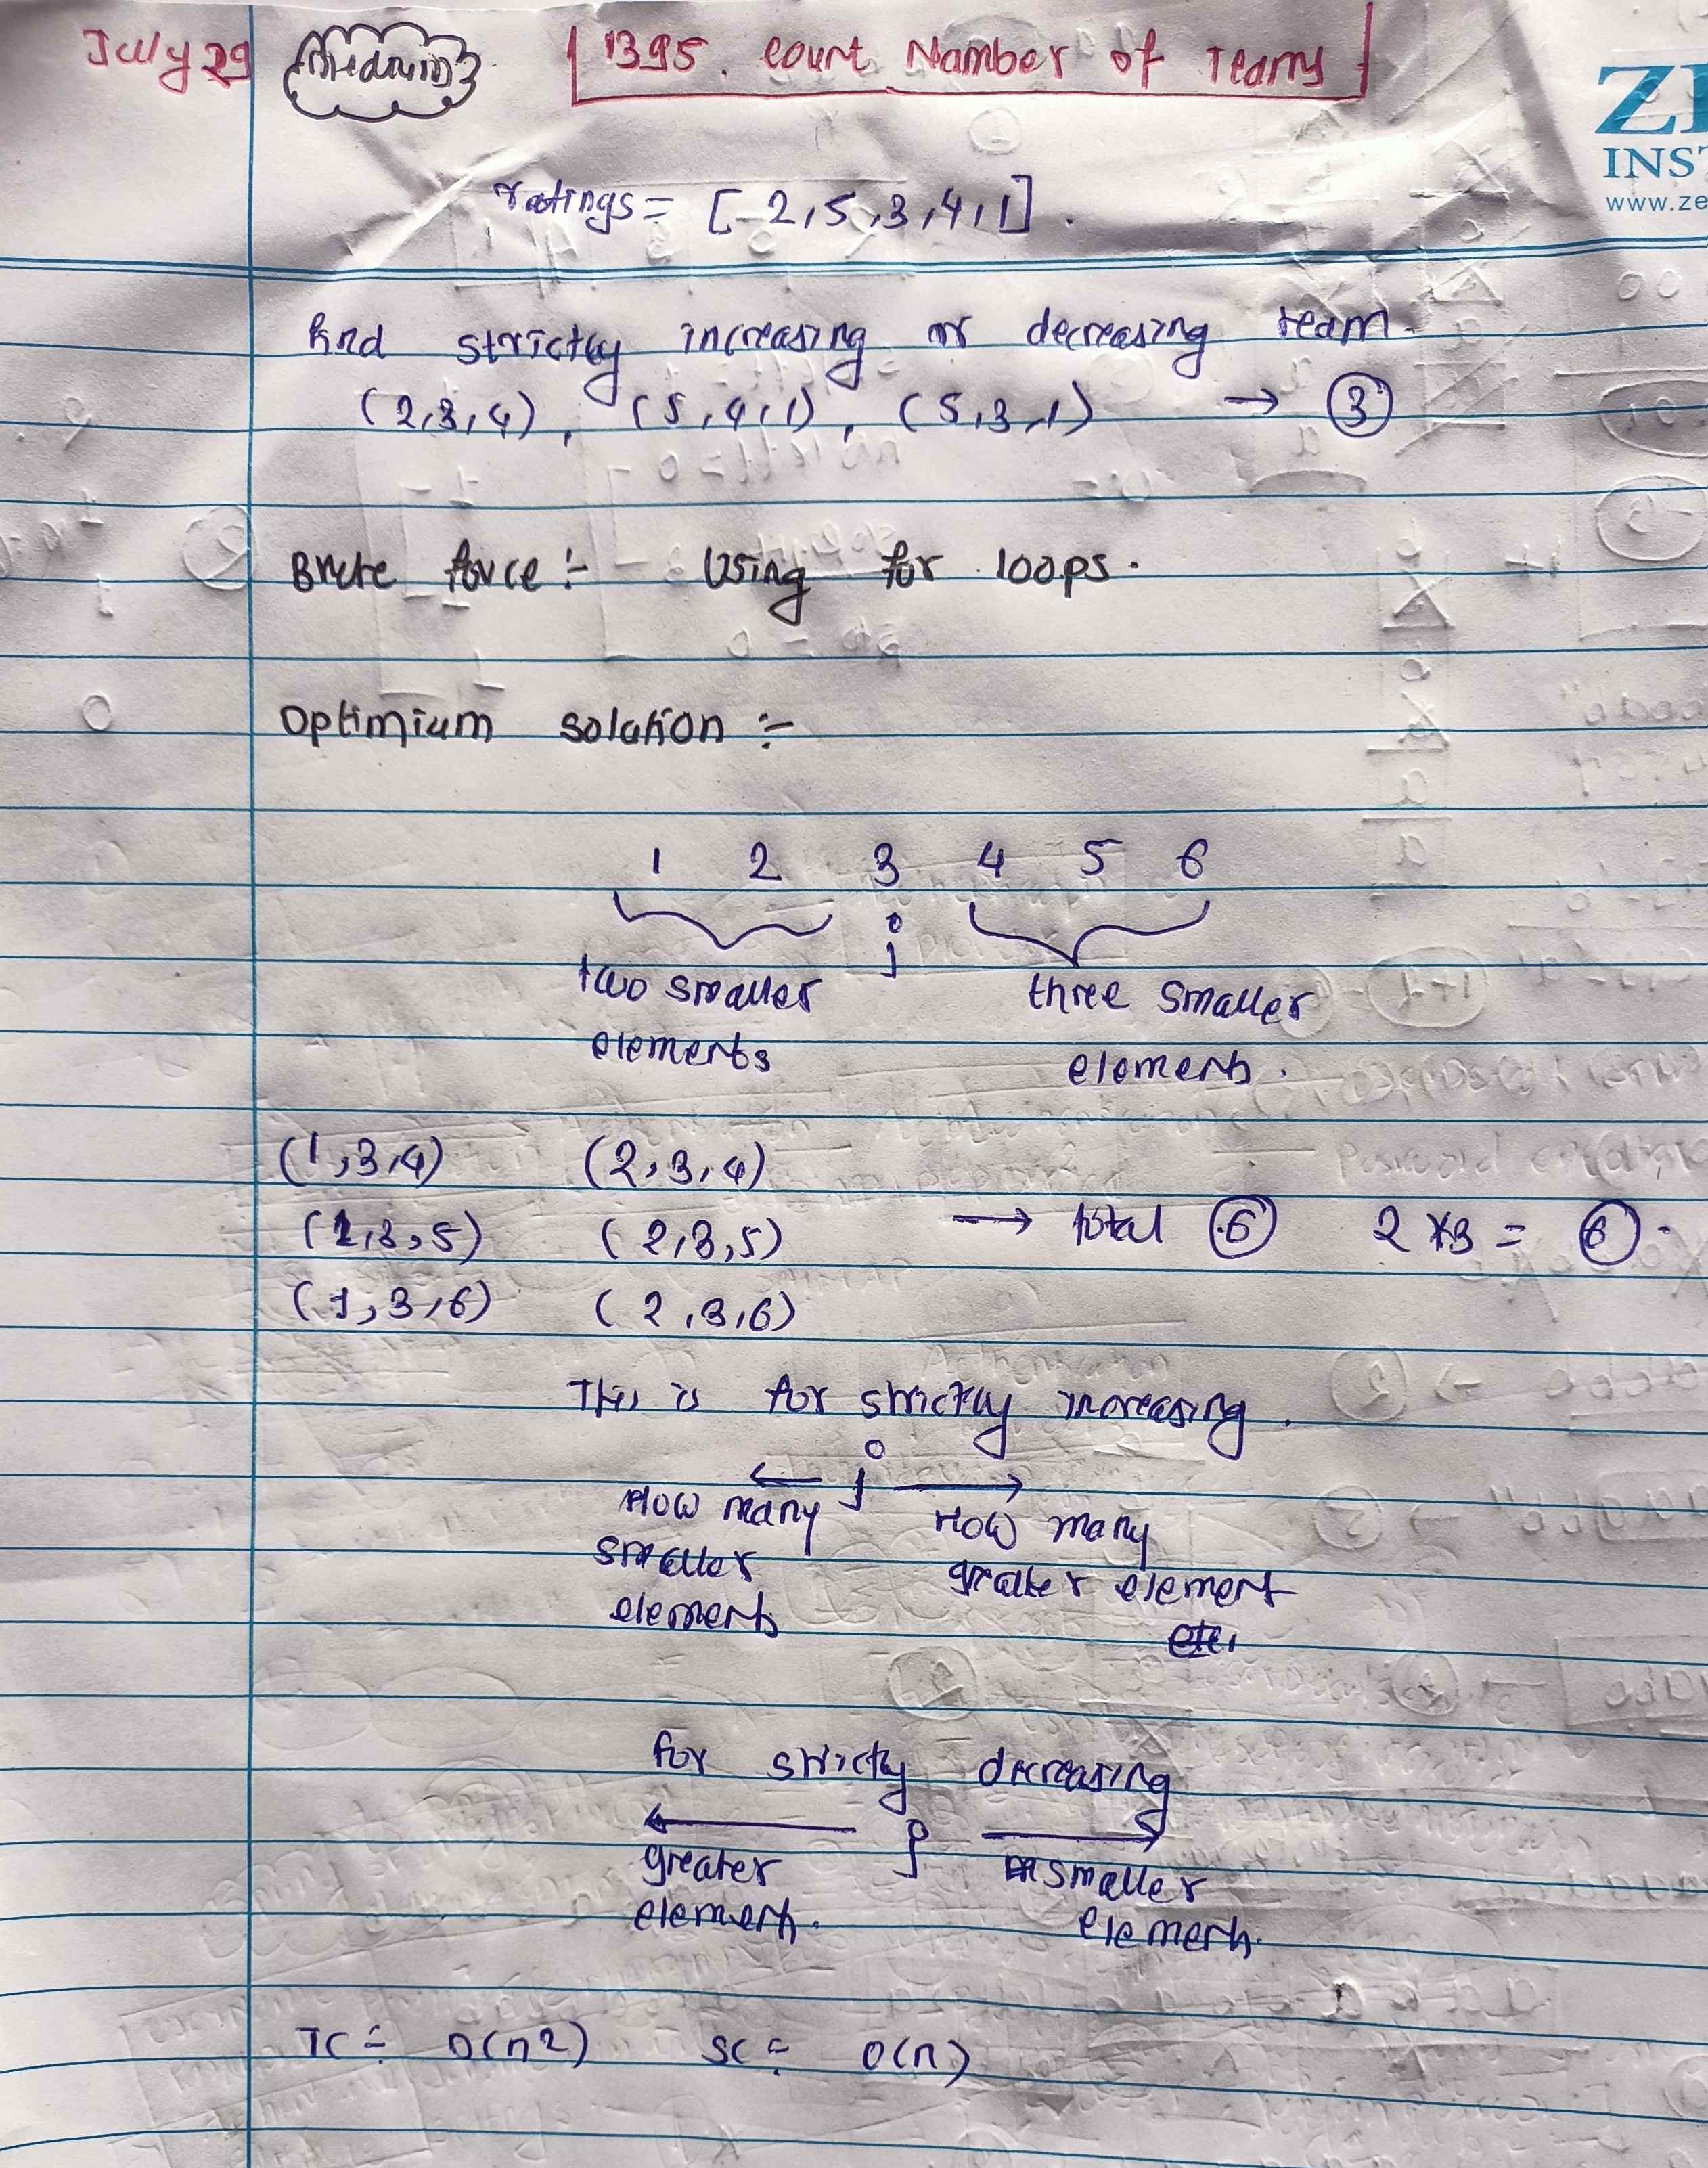 July 29 Medium 1395. Count Number of Teams
ZE
INST
www.ze
ratings = [2,5,3,4,1].
find strictly increasing or decreasing team.
(2,3,4), (5,4,1), (5,3,1) → 3
Brute force :- Using for loops.
Optimium solution :-
1 2 3 4 5 6
j
two smaller three smaller
elements elements.
(1,3,4) (2,3,4)
(1,3,5) (2,3,5) → total 6 2*3 = 6.
(1,3,6) (2,3,6)
This is for strictly increasing.
← j →
How many How many
smaller greater element
elements etc.
for strictly decreasing
← j →
greater smaller
elements. elements.
TC = O(n2) SC = O(n)